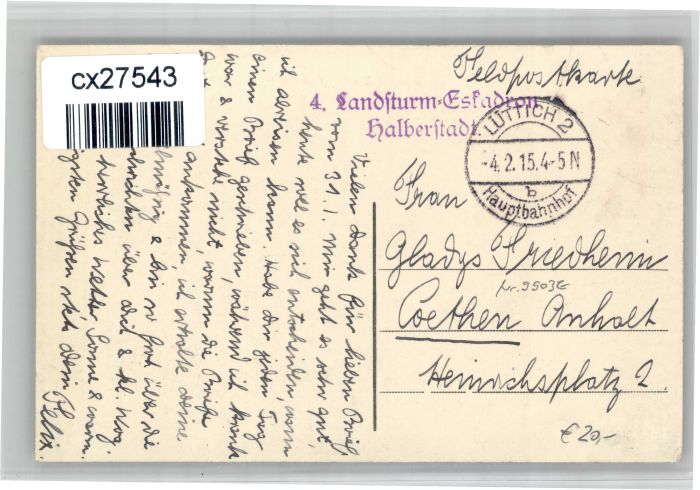 cx27543
Feldpostkarte
4. Landsturm-Eskadron
Halberstadt.
LÜTTICH 2
-4.2.15.4-5N
b
Hauptbahnhof
Frau
Gladys Friedheim
Nr. 9903E
Coethen Anhalt
Heinrichsplatz 2.
€ 20,-
Vielen Dank für Brief
vom 31.1. Mir geht es sehr gut,
heute soll es sich entscheiden, wann
ich abreisen kann. Habe Dir jeden Tag
einen Brief geschrieben, während ich krank
war & verstehe nicht, warum die Briefe
ankommen, ich erhalte Deine
& bin so froh über die
über Dich &
herrliches Wetter Sonne & warm.
Grüßen stets Dein Felix.